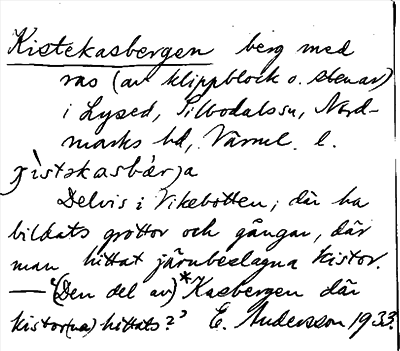 Kistekasbergen berg med
ras (av klippblock o. stenar)
i Lysed, Silbodalssn, Nord-
marks hd, Värml. l.
ɟìstəkasbárja
Delvis i Vikebotten; där ha
bildats grottor och gångar, där
man hittat järnbeslagna kistor.
— '(Den del av) *Kasbergen där
kistor(na) hittats?' E. Andersson 1933.